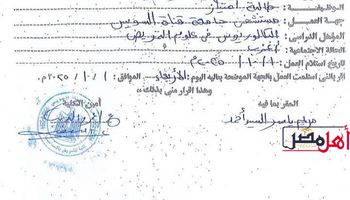 الوظيفة : طالبة امتياز
جهة العمل : مستشفى جامعة قناة السويس
المؤهل الدراسى : بكالوريوس فى علوم التمريض
الحالة الاجتماعية : أعزب
تاريخ استلام العمل : ٢٠٢٥/١٠/١م
أقر بأننى استلمت العمل بالجهة الموضحة بعاليه اليوم : الأربعاء الموافق : ٢٠٢٥/١٠/١م
وهذا إقرار منى بذلك
المقر بما فيه
أمين الكلية
مريم ياسر السيد أحمد
أهل مصر